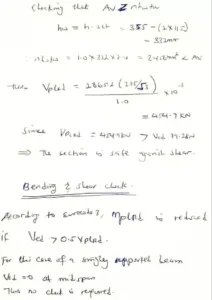 Checking that Av ≥ ηhwtw
hw = h - 2tf = 355 - (2×11.5)
= 332mm
= 1.0 × 332 × 7.4 = < Av
Vpl,rd = (275/√3)
1.0 × 10⁻³
Since Vpl,rd = > Ved
⇒ The section is safe against shear.
Bending & shear check.
According to Eurocode 3, Mpl,rd is reduced
if Ved > 0.5Vpl,rd.
For this case of a simply supported beam
Ved = 0 at midspan
Thus no check is required.